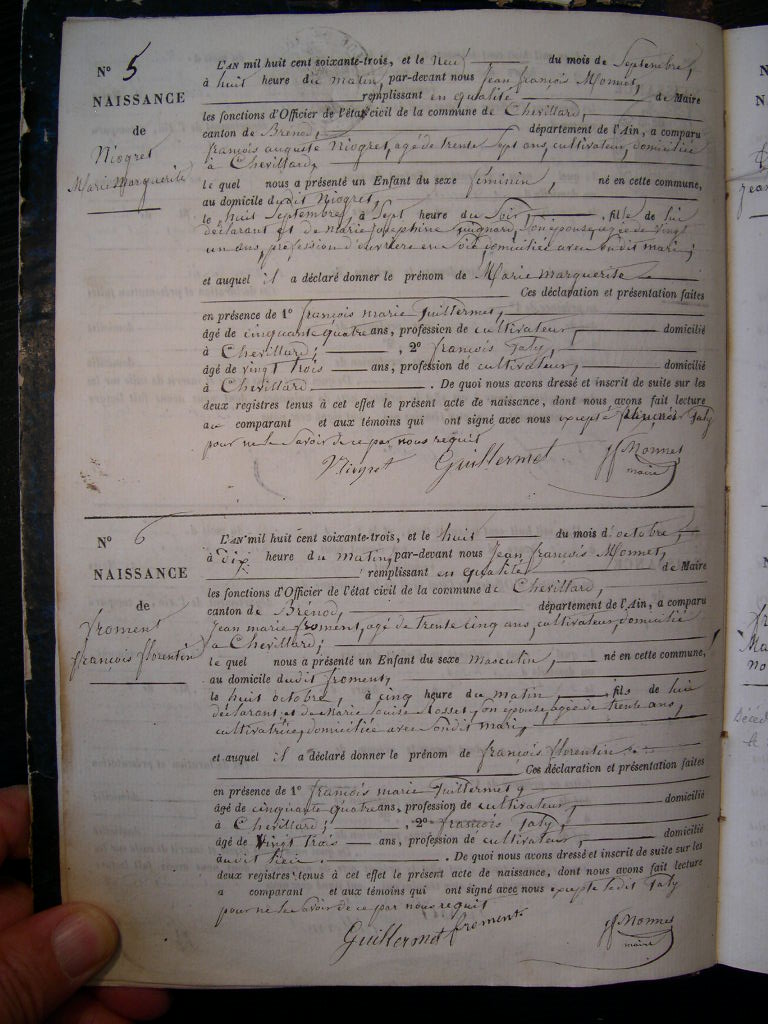 N° 5
NAISSANCE
de
Niogret
Marie Marguerite
L'AN mil huit cent soixante-trois, et le Neuf du mois de Septembre,
à huit heure du matin, par-devant nous Jean françois Monnet,
remplissant en qualité de Maire
les fonctions d'Officier de l'état civil de la commune de Chevillard,
canton de Brénod, département de l'Ain, a comparu
françois auguste Niogret, agé de trente Sept ans, cultivateur, domicilié
à Chevillard,
le quel nous a présenté un Enfant du sexe féminin, né en cette commune,
au domicile dudit Niogret,
le huit Septembre, à Sept heure du Soir, fille de lui
déclarant et de marie josephine Guignard, son épouse, agée de vingt
un ans, profession d'ouvrière en Soie, domiciliée avec Sondit mari;
et auquel il a déclaré donner le prénom de Marie Marguerite
Ces déclaration et présentation faites
en présence de 1° françois marie Guillermet,
âgé de cinquante quatre ans, profession de cultivateur, domicilié
à Chevillard; , 2° françois Taty,
âgé de vingt trois ans, profession de cultivateur, domicilié
à Chevillard. . De quoi nous avons dressé et inscrit de suite sur les
deux registres tenus à cet effet le présent acte de naissance, dont nous avons fait lecture
au comparant et aux témoins qui ont signé avec nous excepté françois Taty
pour ne le Savoir de ce par nous requit
Niogret Guillermet Jf Monnet
maire
N° 6
NAISSANCE
de
froment
françois florentin
L'AN mil huit cent soixante-trois, et le huit du mois d'octobre,
à dix heure du matin, par-devant nous Jean françois Monnet,
remplissant en qualité de Maire
les fonctions d'Officier de l'état civil de la commune de Chevillard,
canton de Brénod, département de l'Ain, a comparu
Jean marie froment, agé de trente cinq ans, cultivateur, domicilié
à Chevillard;
le quel nous a présenté un Enfant du sexe Masculin, né en cette commune,
au domicile dudit froment,
le huit octobre, à cinq heure du matin, fils de lui
déclarant et de Marie Louise Rosset, son épouse, agée de trente ans,
cultivatrice, domiciliée avec Sondit mari,
et auquel il a déclaré donner le prénom de françois florentin
Ces déclaration et présentation faites
en présence de 1° françois marie Guillermet,
âgé de cinquante quatre ans, profession de cultivateur, domicilié
à Chevillard; , 2° françois Taty,
âgé de Vingt trois ans, profession de cultivateur, domicilié
audit lieu. . De quoi nous avons dressé et inscrit de suite sur les
deux registres tenus à cet effet le présent acte de naissance, dont nous avons fait lecture
a comparant et aux témoins qui ont signé avec nous excepté ledit Taty
pour ne le Savoir de ce par nous requit
Guillermet froment Jf Monnet
maire